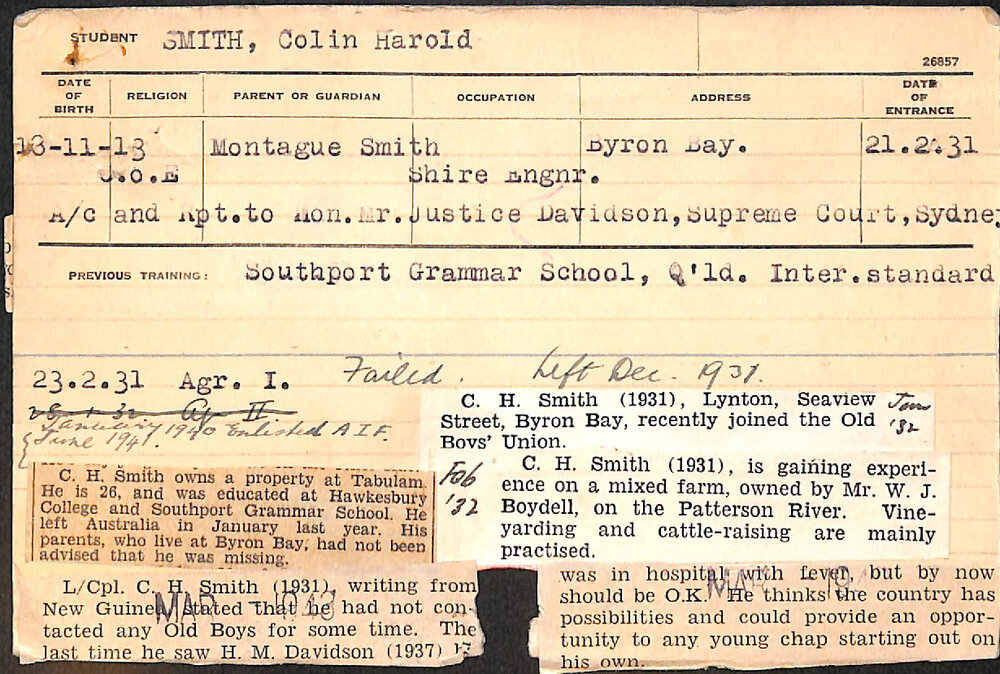 STUDENT SMITH, Colin Harold
26857
DATE OF BIRTH RELIGION PARENT OR GUARDIAN OCCUPATION ADDRESS DATE OF ENTRANCE
13-11-13 Montague Smith Byron Bay. 21.2.31
C.o.E Shire Engnr.
A/c and Rpt.to Hon.Mr.Justice Davidson,Supreme Court,Sydney
PREVIOUS TRAINING: Southport Grammar School, Q'ld. Inter.standard
23.2.31 Agr. I. Failed. Left Dec. 1931.
Ag II
January 1940 Enlisted A.I.F.
June 1941.
C. H. Smith (1931), Lynton, Seaview
Street, Byron Bay, recently joined the Old
Boys' Union.
Jan '32
C. H. Smith (1931), is gaining experi-
ence on a mixed farm, owned by Mr. W. J.
Boydell, on the Patterson River. Vine-
yarding and cattle-raising are mainly
practised.
Feb '32
C. H. Smith owns a property at Tabulam.
He is 26, and was educated at Hawkesbury
College and Southport Grammar School. He
left Australia in January last year. His
parents, who live at Byron Bay, had not been
advised that he was missing.
L/Cpl. C. H. Smith (1931), writing from
New Guinea stated that he had not con-
tacted any Old Boys for some time. The
last time he saw H. M. Davidson (1937) he
MAR 1943
was in hospital with fever, but by now
should be O.K. He thinks the country has
possibilities and could provide an oppor-
tunity to any young chap starting out on
his own.
MAR